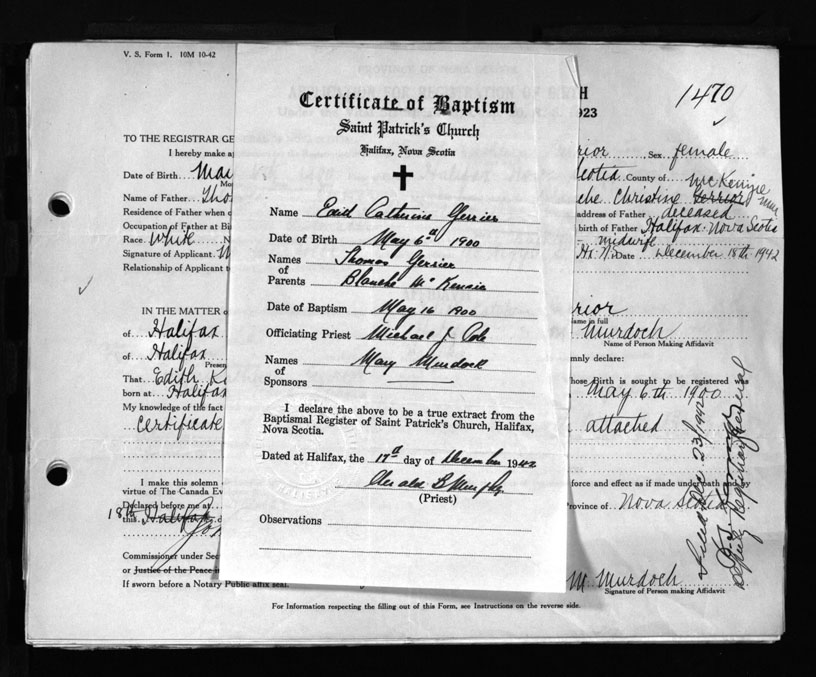 V. S. Form 1. 10M 10-42
H
923
1470
TO THE REGISTRAR GE
I hereby make a
Date of Birth
Name of Father Tho
Residence of Father when
Occupation of Father at Bi
Race White N
Signature of Applicant
Relationship of Applicant t
rior Sex female
Scotia County of
McKenzie
che Christine
address of Father deceased
birth of Father Halifax Nova Scotia
midwife
Date December 18th 1942
IN THE MATTER
of Halifax
of Halifax
That Edith K
born at Halifax
My knowledge of the fact
Certificate
I make this solemn
virtue of The Canada Ev
Declared before me at
18th Halifax
this
Commissioner under Sec
or Justice of the Peace i
If sworn before a Notary Public affix seal.
rior
ame in full
Murdoch
Name of Person Making Affidavit
mnly declare:
hose Birth is sought to be registered was
May 6th 1900
attached
force and effect as if made under oath and by
rovince of Nova Scotia
M Murdoch
Signature of Person making Affidavit
For Information respecting the filling out of this Form, see Instructions on the reverse side.
Certificate of Baptism
Saint Patrick's Church
Halifax, Nova Scotia
Name Catherine Gerrior
Date of Birth May 6th 1900
Names of Parents Thomas Gerrior
Blanche McKenzie
Date of Baptism May 16 1900
Officiating Priest Michael J
Names of Sponsors Mary Murdock
I declare the above to be a true extract from the
Baptismal Register of Saint Patrick's Church, Halifax,
Nova Scotia.
Dated at Halifax, the 17th day of December 1942
Gerald B Murphy
(Priest)
Observations
Deputy Registrar General